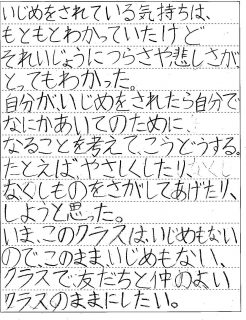 いじめをされている気持ちは、
もともとわかっていたけど
それいじょうにつらさや悲しさが
とってもわかった。
自分が、いじめをされたら自分で
なにかあいてのために、
なることを考えて、こうどうする。
たとえば、やさしくしたり、
なくしものをさがしてあげたり、
しようと思った。
いま、このクラスは、いじめもない
ので、このまま、いじめもない、
クラスで、友だちと仲のよい
クラスのままにしたい。